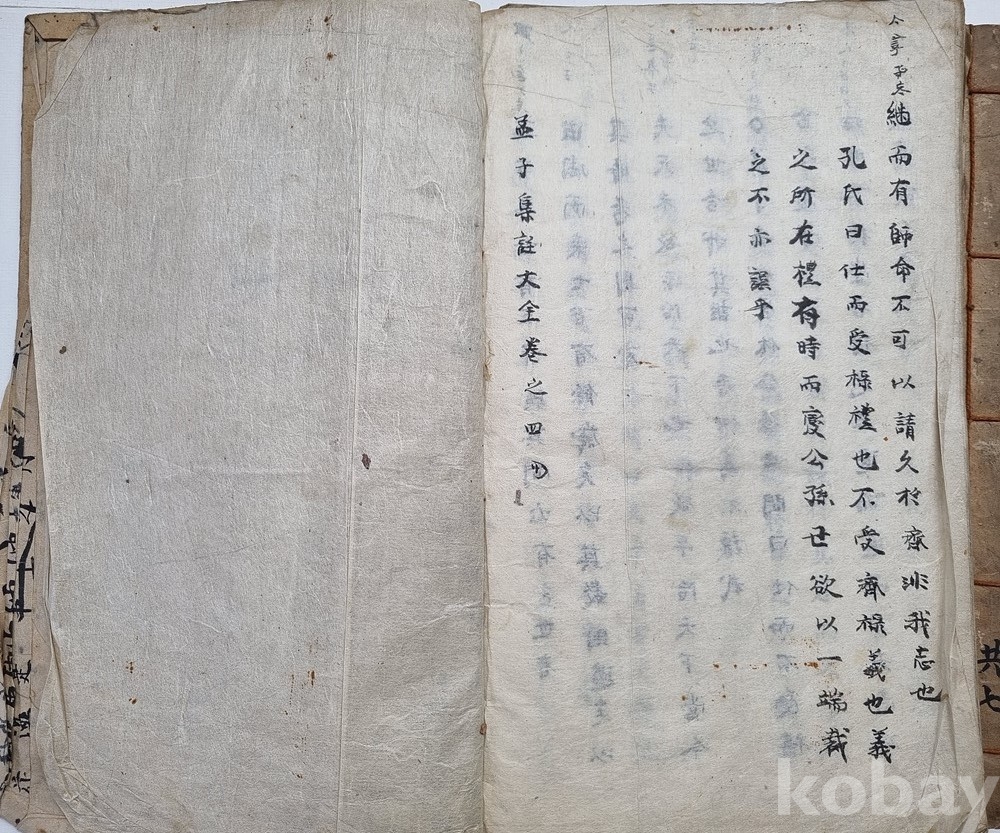 繼而有師命不可以請久於齊非我志也
孔氏曰仕而受祿禮也不受齊祿義也義
之所在禮有時而變公孫丑欲以一端裁
之不亦誤乎
孟子集註大全卷之四
共七
kobay